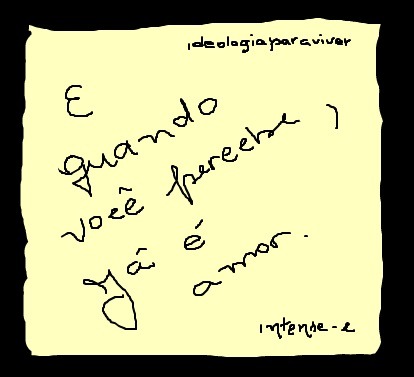 ideologiaparaviver
E
quando
você percebe,
já é
amor.
intense-e